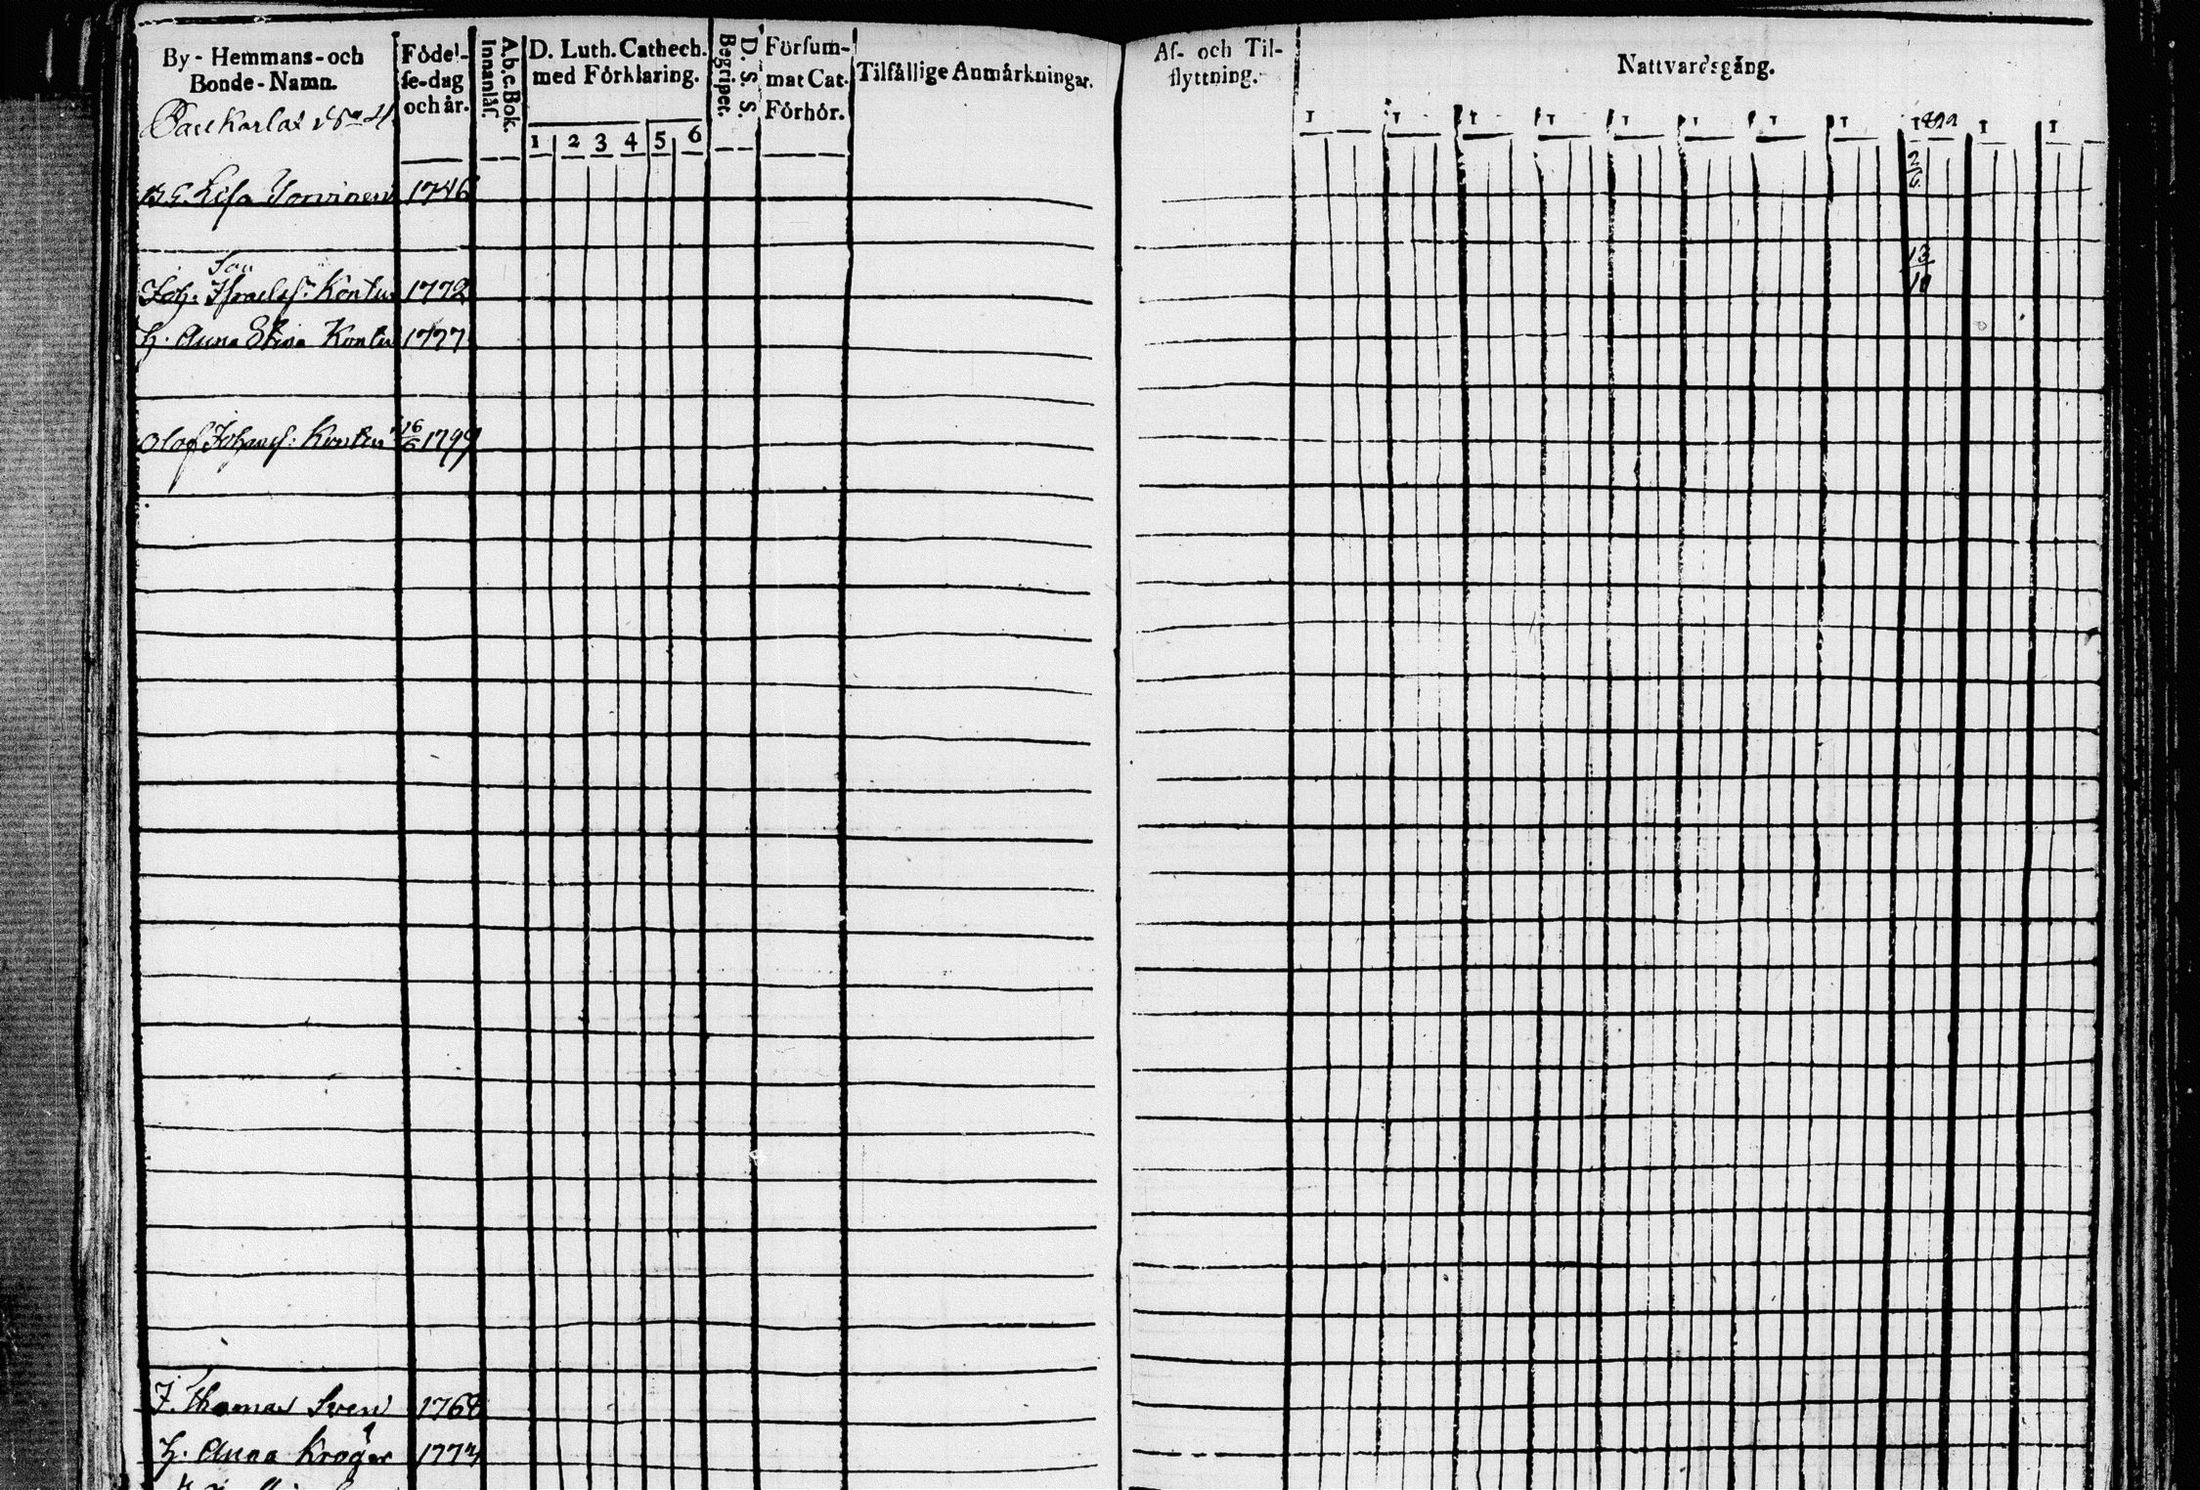 By - Hemmans - och
Bonde - Namn.
Födel-
se-dag
och år.
A.b.c. Bok.
Innanläs.
D. Luth. Cathech.
med Förklaring.
1 2 3 4 5 6
D. S. S.
Begripet.
Försum-
mat Cat.
Förhör.
Tilfällige Anmärkningar.
Af- och Til-
flyttning.
Nattvardsgång.
1 1 1 1 1 1 1 1 1 1 1
2/6
Lisa 1746
13/10
Son
Joh: Israelss: Kontu 1772
H. Anna Stina Kontu 1777
Olof Johanss: Kontu 16/6 1799
Thomas Sven 1768
H. Anna Kröger 1777